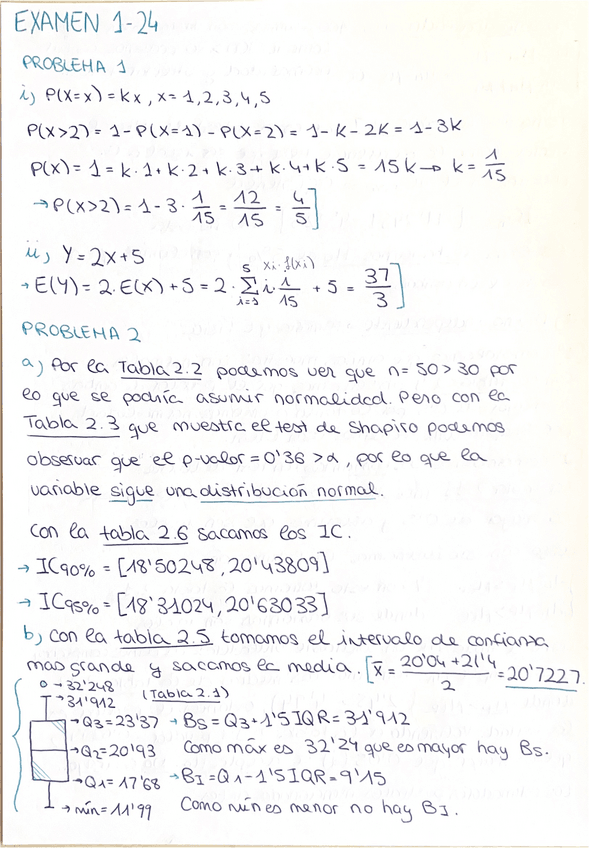 EXAMEN 1-24
PROBLEMA 1
i) P(X=x) = Kx, x = 1,2,3,4,5
P(X>2) = 1 - P(X=1) - P(X=2) = 1 - K - 2K = 1 - 3K
P(X) = 1 = K·1 + K·2 + K·3 + K·4 + K·5 = 15K → K = 1/15
→ P(X>2) = 1 - 3·1/15 = 12/15 = 4/5]
ii) Y = 2X + 5
→ E(Y) = 2·E(X) + 5 = 2·Σ_{i=1}^{5} i·1/15 + 5 = 37/3] xi·f(xi)
PROBLEMA 2
a) Por la Tabla 2.2 podemos ver que n = 50 > 30 por
lo que se podría asumir normalidad. Pero con la
Tabla 2.3 que muestra el test de Shapiro podemos
observar que el p-valor = 0'36 > α, por lo que la
variable sigue una distribución normal.
Con la tabla 2.6 sacamos los IC.
→ IC90% = [18'50248, 20'43809]
→ IC95% = [18'31024, 20'63033]
b) Con la tabla 2.5 tomamos el intervalo de confianza
mas grande y sacamos la media. [x̄ = (20'04 + 21'4)/2 = 20'7227.
o → 32'248
→ 31'912 (Tabla 2.1)
→ Q3 = 23'37 → BS = Q3 + 1'5 IQR = 31'912
→ Q2 = 20'93 Como máx es 32'24 que es mayor hay BS.
→ Q1 = 17'68 → BI = Q1 - 1'5 IQR = 9'15
→ mín = 11'99 Como mín es menor no hay BI.